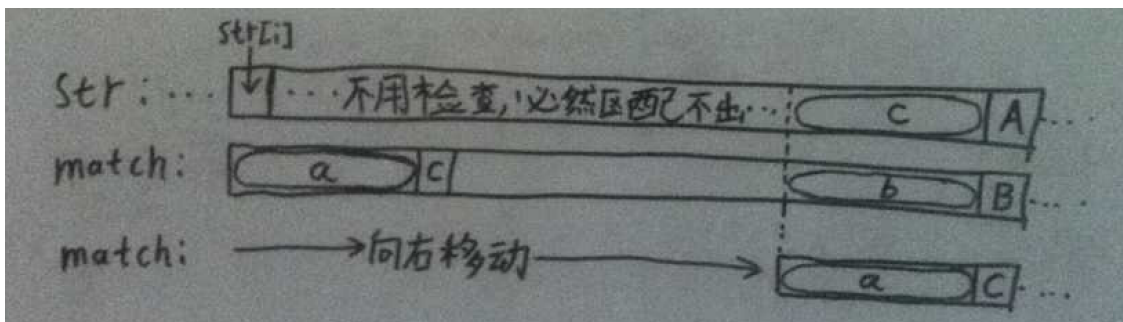 str[i]
str: ... ...不用检查,必然匹配不出... c A ...
match: a C b B ...
match: 向右移动 a C ...